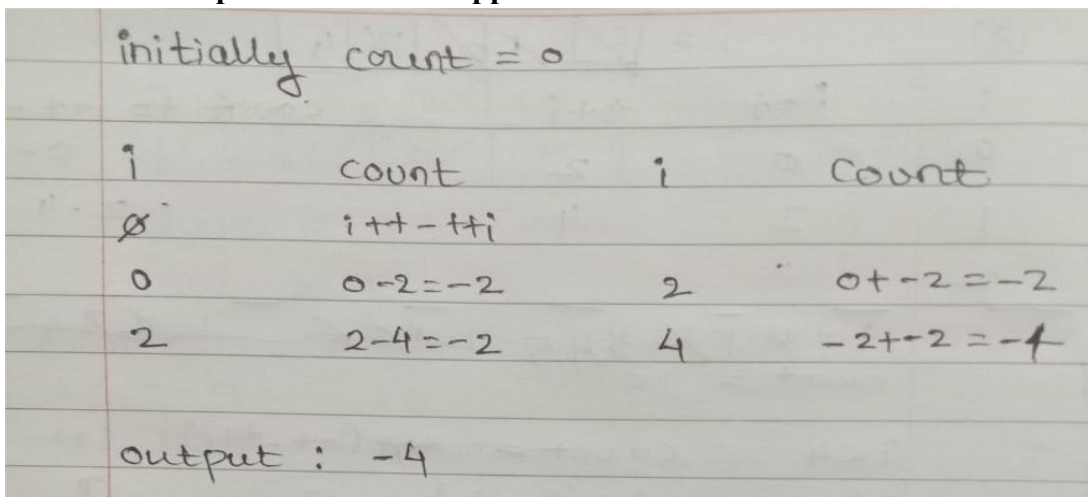 initially count = 0
i count i count
0 i++ - ++i
0 0-2=-2 2 0+-2=-2
2 2-4=-2 4 -2+-2=-4
output : -4